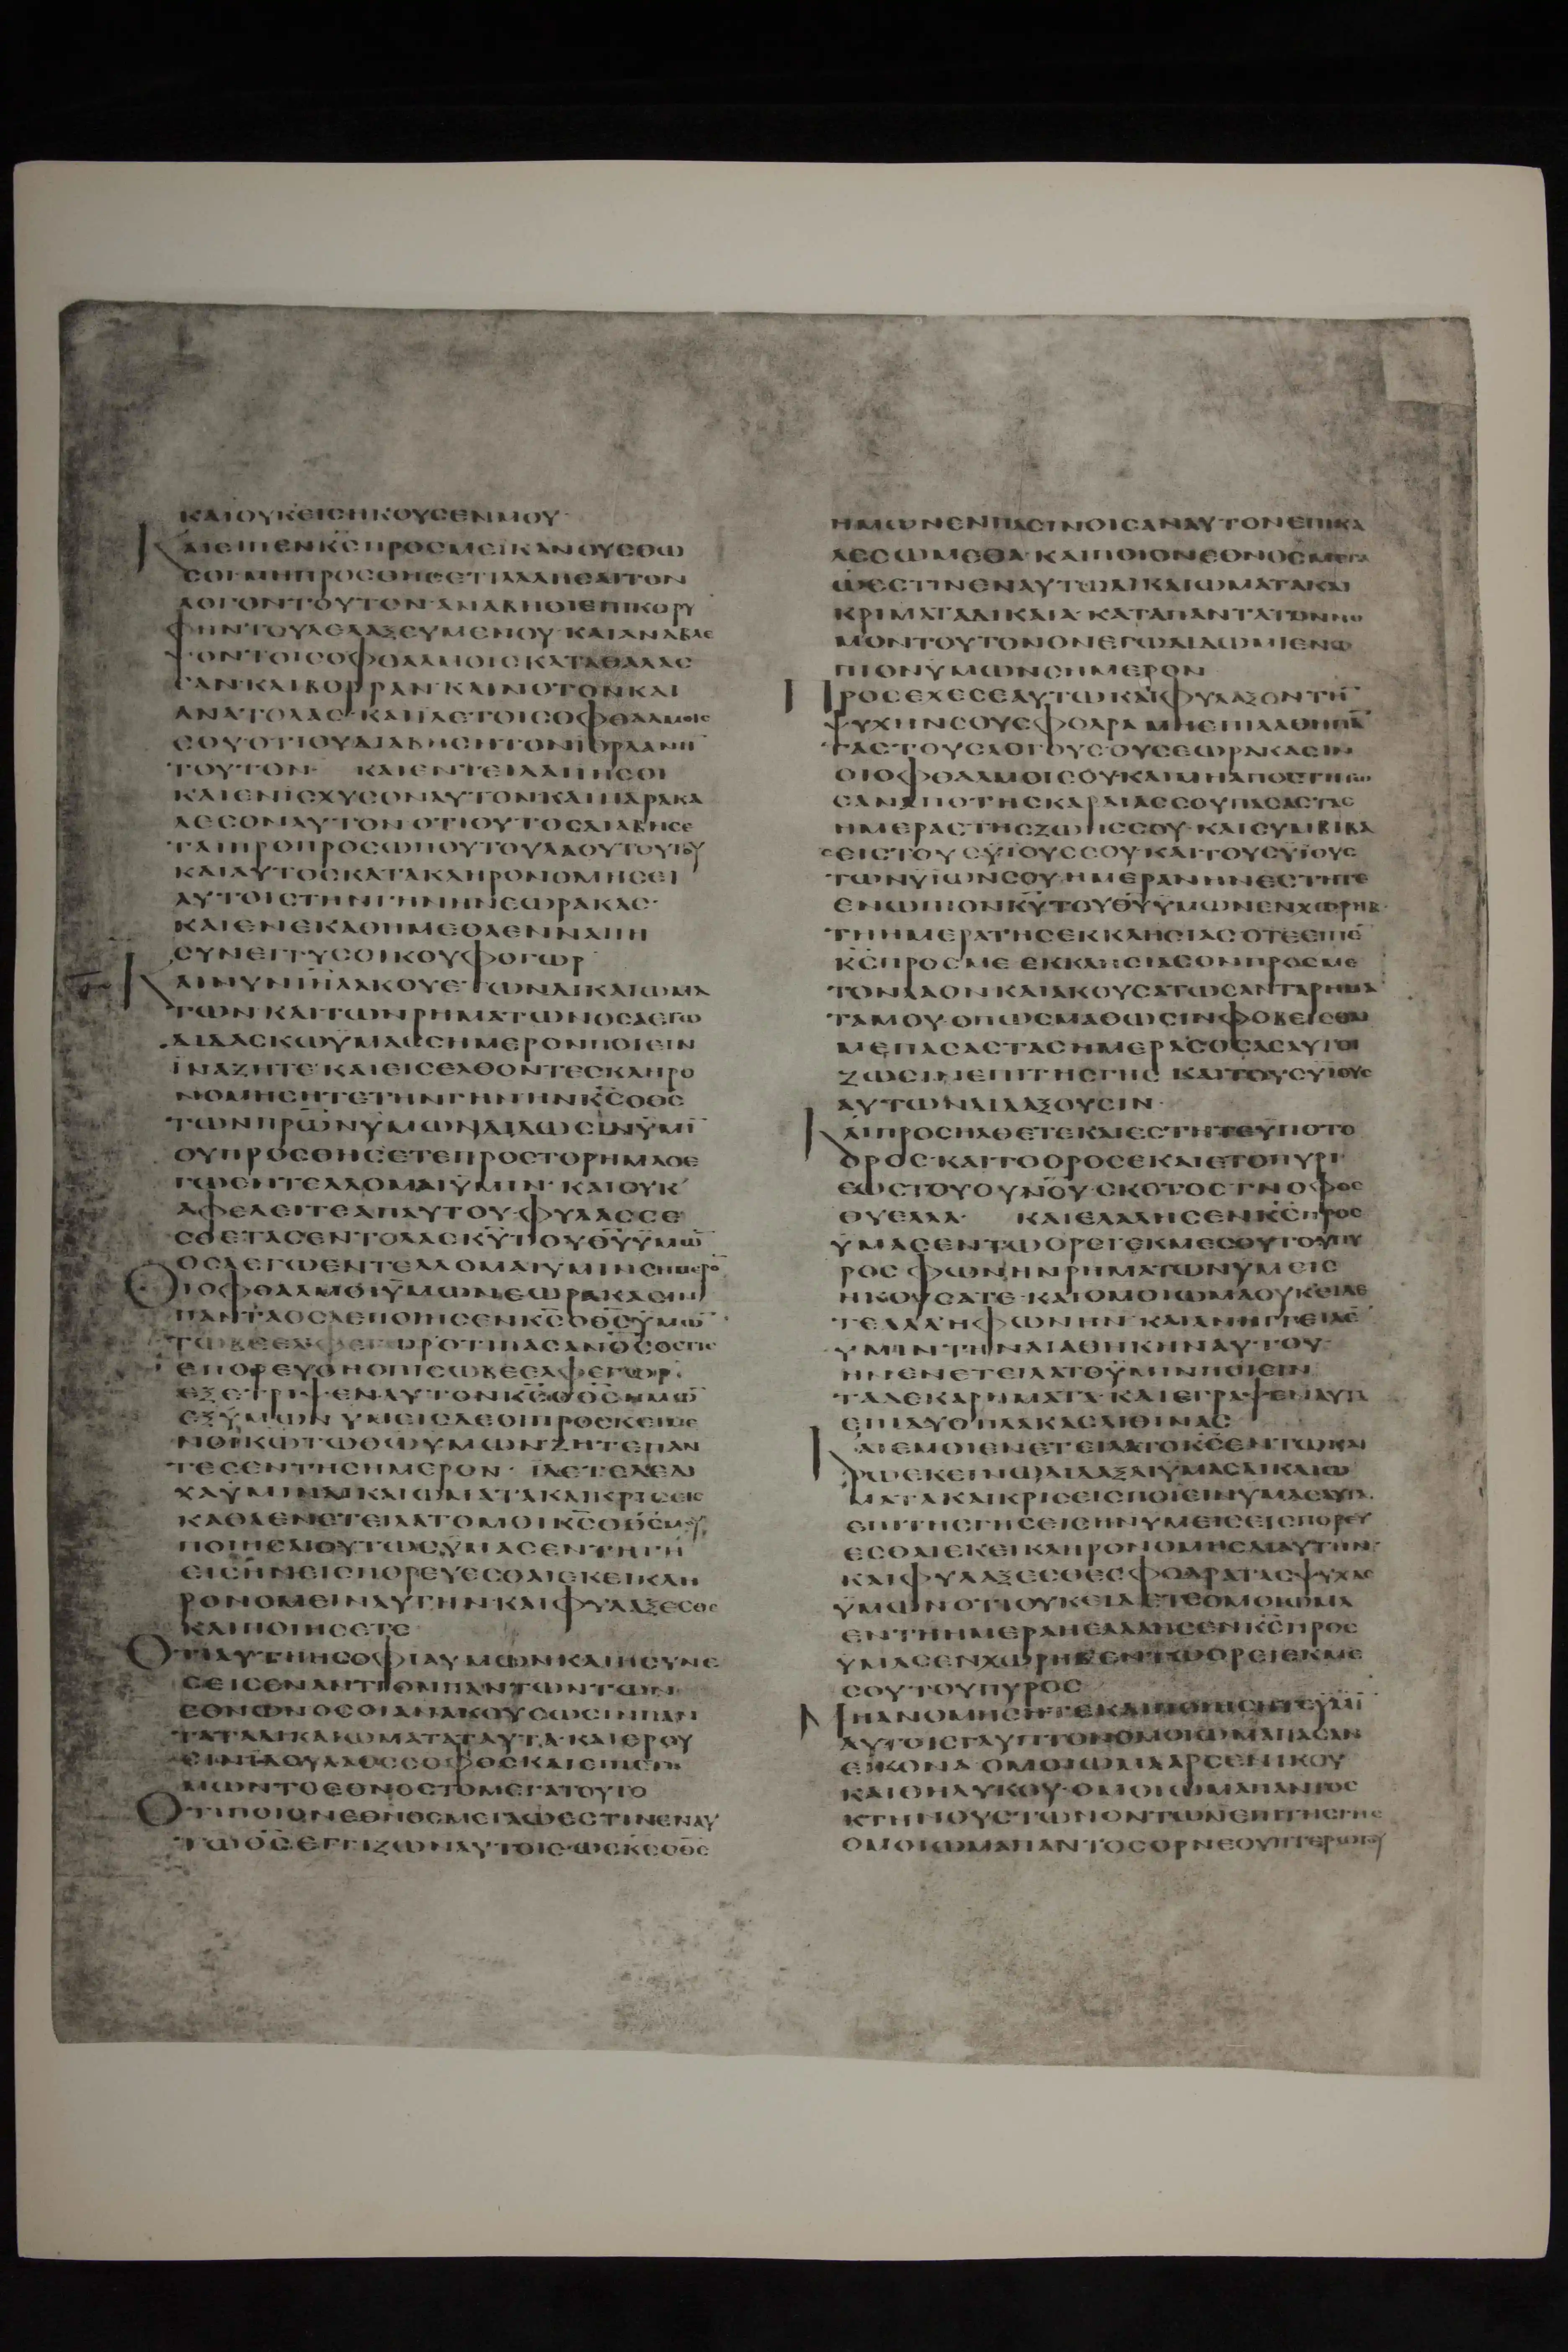 ΚΑΙΟΥΚΕΙΣΗΚΟΥΣΕΝΜΟΥ·
ΚΑΙΕΙΠΕΝΚΣΠΡΟΣΜΕΪΚΑΝΟΥΣΘΩ
ΣΟΙ·ΜΗΠΡΟΣΘΗΣΕΤΙΛΑΛΗΣΑΙΤΟΝ
ΛΟΓΟΝΤΟΥΤΟΝ·ΑΝΑΒΗΘΙΕΠΙΚΟΡΥ
ΦΗΝΤΟΥΛΕΛΑΞΕΥΜΕΝΟΥ·ΚΑΙΑΝΑΒΛΕ
ΨΟΝΤΟΙΣΟΦΘΑΛΜΟΙΣΚΑΤΑΘΑΛΑΣ
ΣΑΝ·ΚΑΙΒΟΡΡΑΝ·ΚΑΙΝΟΤΟΝΚΑΙ
ΑΝΑΤΟΛΑΣ·ΚΑΙΙΔΕΤΟΙΣΟΦΘΑΛΜΟΙΣ
ΣΟΥΟΤΙΟΥΔΙΑΒΗΣΗΤΟΝΙΟΡΔΑΝΗ
ΤΟΥΤΟΝ· ΚΑΙΕΝΤΕΙΛΑΙΙΗΣΟΙ
ΚΑΙΕΝΙΣΧΥΣΟΝΑΥΤΟΝ·ΚΑΙΠΑΡΑΚΑ
ΛΕΣΟΝΑΥΤΟΝ·ΟΤΙΟΥΤΟΣΔΙΑΒΗΣΕ
ΤΑΙΠΡΟΠΡΟΣΩΠΟΥΤΟΥΛΑΟΥΤΟΥΤΟΥ
ΚΑΙΑΥΤΟΣΚΑΤΑΚΛΗΡΟΝΟΜΗΣΕΙ
ΑΥΤΟΙΣΤΗΝΓΗΝΗΝΕΩΡΑΚΑΣ·
ΚΑΙΕΝΕΚΑΘΗΜΕΘΑΕΝΝΑΠΗ
ΣΥΝΕΓΓΥΣΟΙΚΟΥΦΟΓΩΡ
ΚΑΙΝΥΝΙΗΛΑΚΟΥΕ·ΤΩΝΔΙΚΑΙΩΜΑ
ΤΩΝΚΑΙΤΩΝΡΗΜΑΤΩΝΟΣΑΕΓΩ
ΔΙΔΑΣΚΩΥΜΑΣΣΗΜΕΡΟΝΠΟΙΕΙΝ
ΪΝΑΖΗΤΕ·ΚΑΙΕΙΣΕΛΘΟΝΤΕΣΚΛΗΡΟ
ΝΟΜΗΣΗΤΕΤΗΝΓΗΝΗΝΚΣΟΘΣ
ΤΩΝΠΡΩΝΥΜΩΝΔΙΔΩΣΙΝΥΜΙ
ΟΥΠΡΟΣΘΗΣΕΤΕΠΡΟΣΤΟΡΗΜΑΟΕ
ΓΩΕΝΤΕΛΛΟΜΑΙΥΜΙΝ·ΚΑΙΟΥΚ
ΑΦΕΛΕΙΤΕΑΠΑΥΤΟΥ·ΦΥΛΑΣΣΕ
ΣΘΕΤΑΣΕΝΤΟΛΑΣΚΥΤΟΥΘΥΥΜΩ
ΟΣΑΕΓΩΕΝΤΕΛΛΟΜΑΙΥΜΙΝΣΗΜΕΡΟ
ΟΙΟΦΘΑΛΜΟΙΥΜΩΝΕΩΡΑΚΑΣΙΝ
ΠΑΝΤΑΟΣΑΕΠΟΙΗΣΕΝΚΣΟΘΣΥΜΩ
ΤΩΒΕΕΛΦΕΓΩΡΟΤΙΠΑΣΑΝΟΣΟΣΤΙΣ
ΕΠΟΡΕΥΘΗΟΠΙΣΩΒΕΕΛΦΕΓΩΡ·
ΕΞΕΤΡΙΨΕΝΑΥΤΟΝΚΣΟΘΣΗΜΩ
ΕΞΥΜΩΝ·ΥΜΕΙΣΔΕΟΙΠΡΟΣΚΕΙΜΕ
ΝΟΙΚΩΤΩΘΩΥΜΩΝΖΗΤΕΠΑΝ
ΤΕΣΕΝΤΗΣΗΜΕΡΟΝ· ΙΔΕΤΕΔΕΔΙ
ΧΑΥΜΙΝΔΙΚΑΙΩΜΑΤΑΚΑΙΚΡΙΣΕΙΣ
ΚΑΘΑΕΝΕΤΕΙΛΑΤΟΜΟΙΚΣΟΘΣΜΟΥ
ΠΟΙΗΣΑΙΟΥΤΩΣΥΜΑΣΕΝΤΗΓΗ
ΕΙΣΗΝΕΙΣΠΟΡΕΥΕΣΘΑΙΕΚΕΙΚΛΗ
ΡΟΝΟΜΕΙΝΑΥΤΗΝΚΑΙΦΥΛΑΞΕΣΘΕ
ΚΑΙΠΟΙΗΣΕΤΕ
ΟΤΙΑΥΤΗΗΣΟΦΙΑΥΜΩΝΚΑΙΗΣΥΝΕ
ΣΕΙΣΕΝΑΝΤΙΟΝΠΑΝΤΩΝΤΩΝ
ΕΘΝΩΝΟΣΟΙΑΝΑΚΟΥΣΩΣΙΝΠΑΝ
ΤΑΤΑΔΙΚΑΙΩΜΑΤΑΤΑΥΤΑ·ΚΑΙΕΡΟΥ
ΣΙΝΙΔΟΥΛΑΟΣΣΟΦΟΣΚΑΙΕΠΙΣΤΗ
ΜΩΝΤΟΕΘΝΟΣΤΟΜΕΓΑΤΟΥΤΟ
ΟΤΙΠΟΙΟΝΕΘΝΟΣΜΕΓΑΩΕΣΤΙΝΕΝΑΥ
ΤΩΘΣΕΓΓΙΖΩΝΑΥΤΟΙΣ·ΩΣΚΣΟΘΣ
ΗΜΩΝΕΝΠΑΣΙΝΟΙΣΑΝΑΥΤΟΝΕΠΙΚΑ
ΛΕΣΩΜΕΘΑ·ΚΑΙΠΟΙΟΝΕΘΝΟΣΜΕΓΑ
ΩΕΣΤΙΝΕΝΑΥΤΩΔΙΚΑΙΩΜΑΤΑΚΑΙ
ΚΡΙΜΑΤΑΔΙΚΑΙΑ·ΚΑΤΑΠΑΝΤΑΤΟΝΝΟ
ΜΟΝΤΟΥΤΟΝΟΝΕΓΩΔΙΔΩΜΙΕΝΩ
ΠΙΟΝΥΜΩΝΣΗΜΕΡΟΝ
ΠΡΟΣΕΧΕΣΕΑΥΤΩΚΑΙΦΥΛΑΞΟΝΤΗ
ΨΥΧΗΝΣΟΥΣΦΟΔΡΑ·ΜΗΕΠΙΛΑΘΗΠΑ
ΤΑΣΤΟΥΣΛΟΓΟΥΣΟΥΣΕΩΡΑΚΑΣΙΝ
ΟΙΟΦΘΑΛΜΟΙΣΟΥ·ΚΑΙΜΗΑΠΟΣΤΗΤΩ
ΣΑΝΑΠΟΤΗΣΚΑΡΔΙΑΣΣΟΥΠΑΣΑΣΤΑΣ
ΗΜΕΡΑΣΤΗΣΖΩΗΣΣΟΥ·ΚΑΙΣΥΜΒΙΒΑ
ΣΕΙΣΤΟΥΣΥΙΟΥΣΣΟΥ·ΚΑΙΤΟΥΣΥΙΟΥΣ
ΤΩΝΥΙΩΝΣΟΥ·ΗΜΕΡΑΝΗΝΕΣΤΗΤΕ
ΕΝΩΠΙΟΝΚΥΤΟΥΘΥΥΜΩΝΕΝΧΩΡΗΒ·
ΤΗΗΜΕΡΑΤΗΣΕΚΚΛΗΣΙΑΣΟΤΕΕΙΠΕ
ΚΣΠΡΟΣΜΕ·ΕΚΚΛΗΣΙΑΣΟΝΠΡΟΣΜΕ
ΤΟΝΛΑΟΝΚΑΙΑΚΟΥΣΑΤΩΣΑΝΤΑΡΗΜΑ
ΤΑΜΟΥ·ΟΠΩΣΜΑΘΩΣΙΝΦΟΒΕΙΣΘΑΙ
ΜΕΠΑΣΑΣΤΑΣΗΜΕΡΑΣΟΣΑΣΑΥΤΟΙ
ΖΩΣΙΝΕΠΙΤΗΣΓΗΣ·ΚΑΙΤΟΥΣΥΙΟΥΣ
ΑΥΤΩΝΔΙΔΑΞΟΥΣΙΝ·
ΚΑΙΠΡΟΣΗΛΘΕΤΕΚΑΙΕΣΤΗΤΕΥΠΟΤΟ
ΟΡΟΣ·ΚΑΙΤΟΟΡΟΣΕΚΑΙΕΤΟΠΥΡΙ
ΕΩΣΤΟΥΟΥΝΟΥ·ΣΚΟΤΟΣ·ΓΝΟΦΟΣ
ΘΥΕΛΛΑ· ΚΑΙΕΛΑΛΗΣΕΝΚΣΠΡΟΣ
ΥΜΑΣΕΝΤΩΟΡΕΙΕΚΜΕΣΟΥΤΟΥΠΥ
ΡΟΣ·ΦΩΝΗΝΡΗΜΑΤΩΝΥΜΕΙΣ
ΗΚΟΥΣΑΤΕ·ΚΑΙΟΜΟΙΩΜΑΟΥΚΕΙΔΕ
ΤΕΑΛΛΗΦΩΝΗΝ·ΚΑΙΑΝΗΓΓΕΙΛΕ
ΥΜΙΝΤΗΝΔΙΑΘΗΚΗΝΑΥΤΟΥ·
ΗΝΕΝΕΤΕΙΛΑΤΟΥΜΙΝΠΟΙΕΙΝ
ΤΑΔΕΚΑΡΗΜΑΤΑ·ΚΑΙΕΓΡΑΨΕΝΑΥΤΑ
ΕΠΙΔΥΟΠΛΑΚΑΣΛΙΘΙΝΑΣ
ΚΑΙΕΜΟΙΕΝΕΤΕΙΛΑΤΟΚΣΕΝΤΩΚΑΙ
ΡΩΕΚΕΙΝΩΔΙΔΑΞΑΙΥΜΑΣΔΙΚΑΙΩ
ΜΑΤΑΚΑΙΚΡΙΣΕΙΣΠΟΙΕΙΝΥΜΑΣΑΥΤΑ
ΕΠΙΤΗΣΓΗΣΕΙΣΗΝΥΜΕΙΣΕΙΣΠΟΡΕΥ
ΕΣΘΑΙΕΚΕΙΚΛΗΡΟΝΟΜΗΣΑΙΑΥΤΗΝ·
ΚΑΙΦΥΛΑΞΕΣΘΕΣΦΟΔΡΑΤΑΣΨΥΧΑΣ
ΥΜΩΝΟΤΙΟΥΚΕΙΔΕΤΕΟΜΟΙΩΜΑ
ΕΝΤΗΗΜΕΡΑΗΕΛΑΛΗΣΕΝΚΣΠΡΟΣ
ΥΜΑΣΕΝΧΩΡΗΒΕΝΤΩΟΡΕΙΕΚΜΕ
ΣΟΥΤΟΥΠΥΡΟΣ
ΜΗΑΝΟΜΗΣΗΤΕΚΑΙΠΟΙΗΣΗΤΕΥΜΙ
ΑΥΤΟΙΣΓΛΥΠΤΟΝΟΜΟΙΩΜΑΠΑΣΑΝ
ΕΙΚΟΝΑ·ΟΜΟΙΩΜΑΑΡΣΕΝΙΚΟΥ
ΚΑΙΘΗΛΥΚΟΥ·ΟΜΟΙΩΜΑΠΑΝΤΟΣ
ΚΤΗΝΟΥΣΤΩΝΟΝΤΩΝΕΠΙΤΗΣΓΗΣ
ΟΜΟΙΩΜΑΠΑΝΤΟΣΟΡΝΕΟΥΠΤΕΡΩΤΟΥ